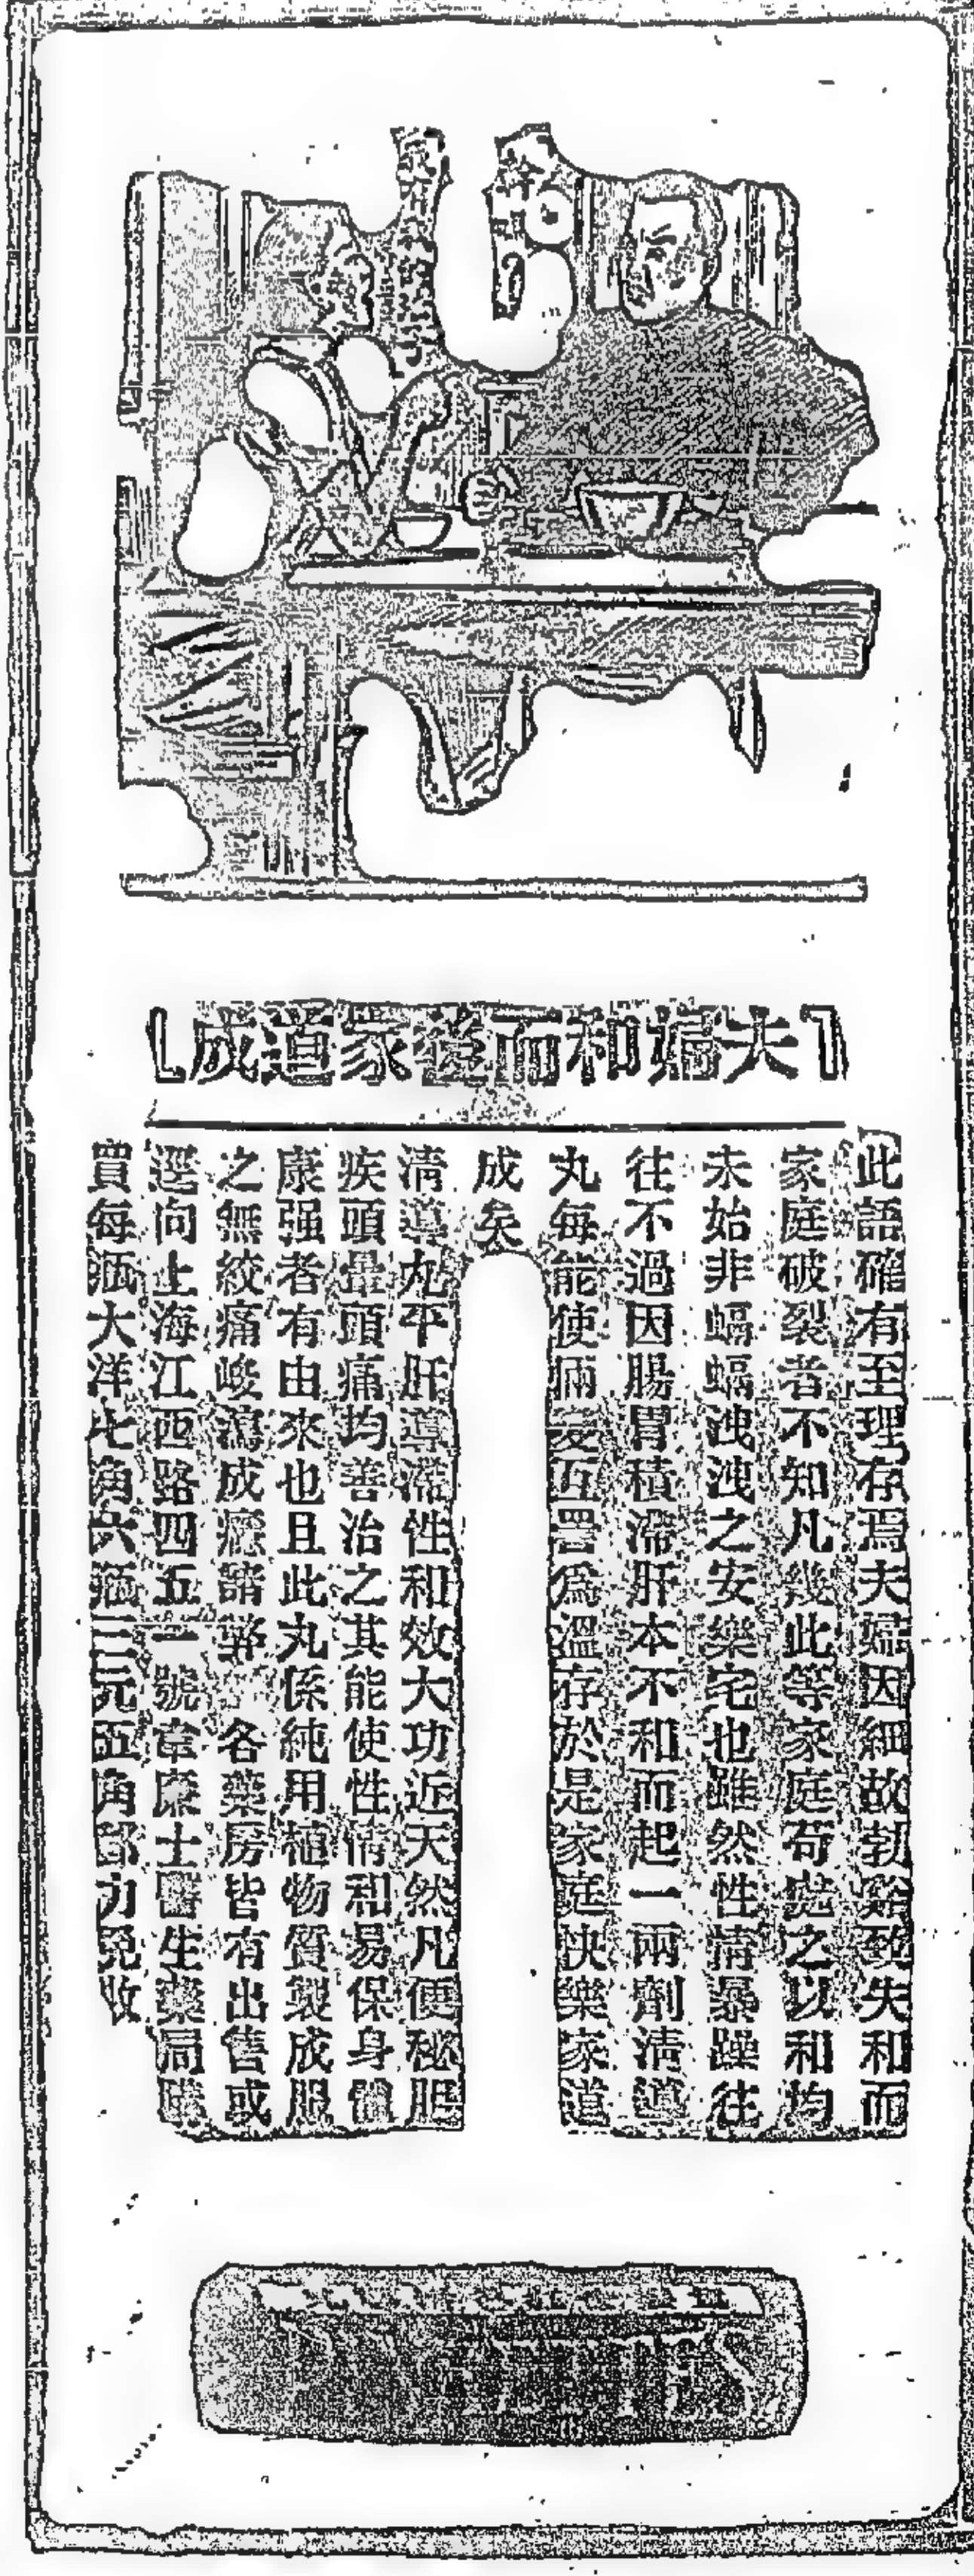 「夫婦和而後家道成」
此語確有至理存焉夫婦因細故勃谿致失和而
家庭破裂者不知凡幾此等家庭苟能之以和均
未始非融融洩洩之安樂宅也雖然性情暴躁往
往不過因腸胃積滯肝本不和而起一兩劑清導
丸每能使兩妻互詈為溫存於是家庭快樂家道
成矣
清導丸平肝導滯性和效大功近天然凡便秘胆
疾頭暈頭痛均善治之其能使性情和易保身體
康强者有由來也且此丸係純用植物質製成服
之無絞痛峻瀉成癮諸弊 各藥房皆有出售或
逕向上海江西路四五一號韋廉士醫生藥局購
買每瓶大洋七角六瓶三元五角郵力免收